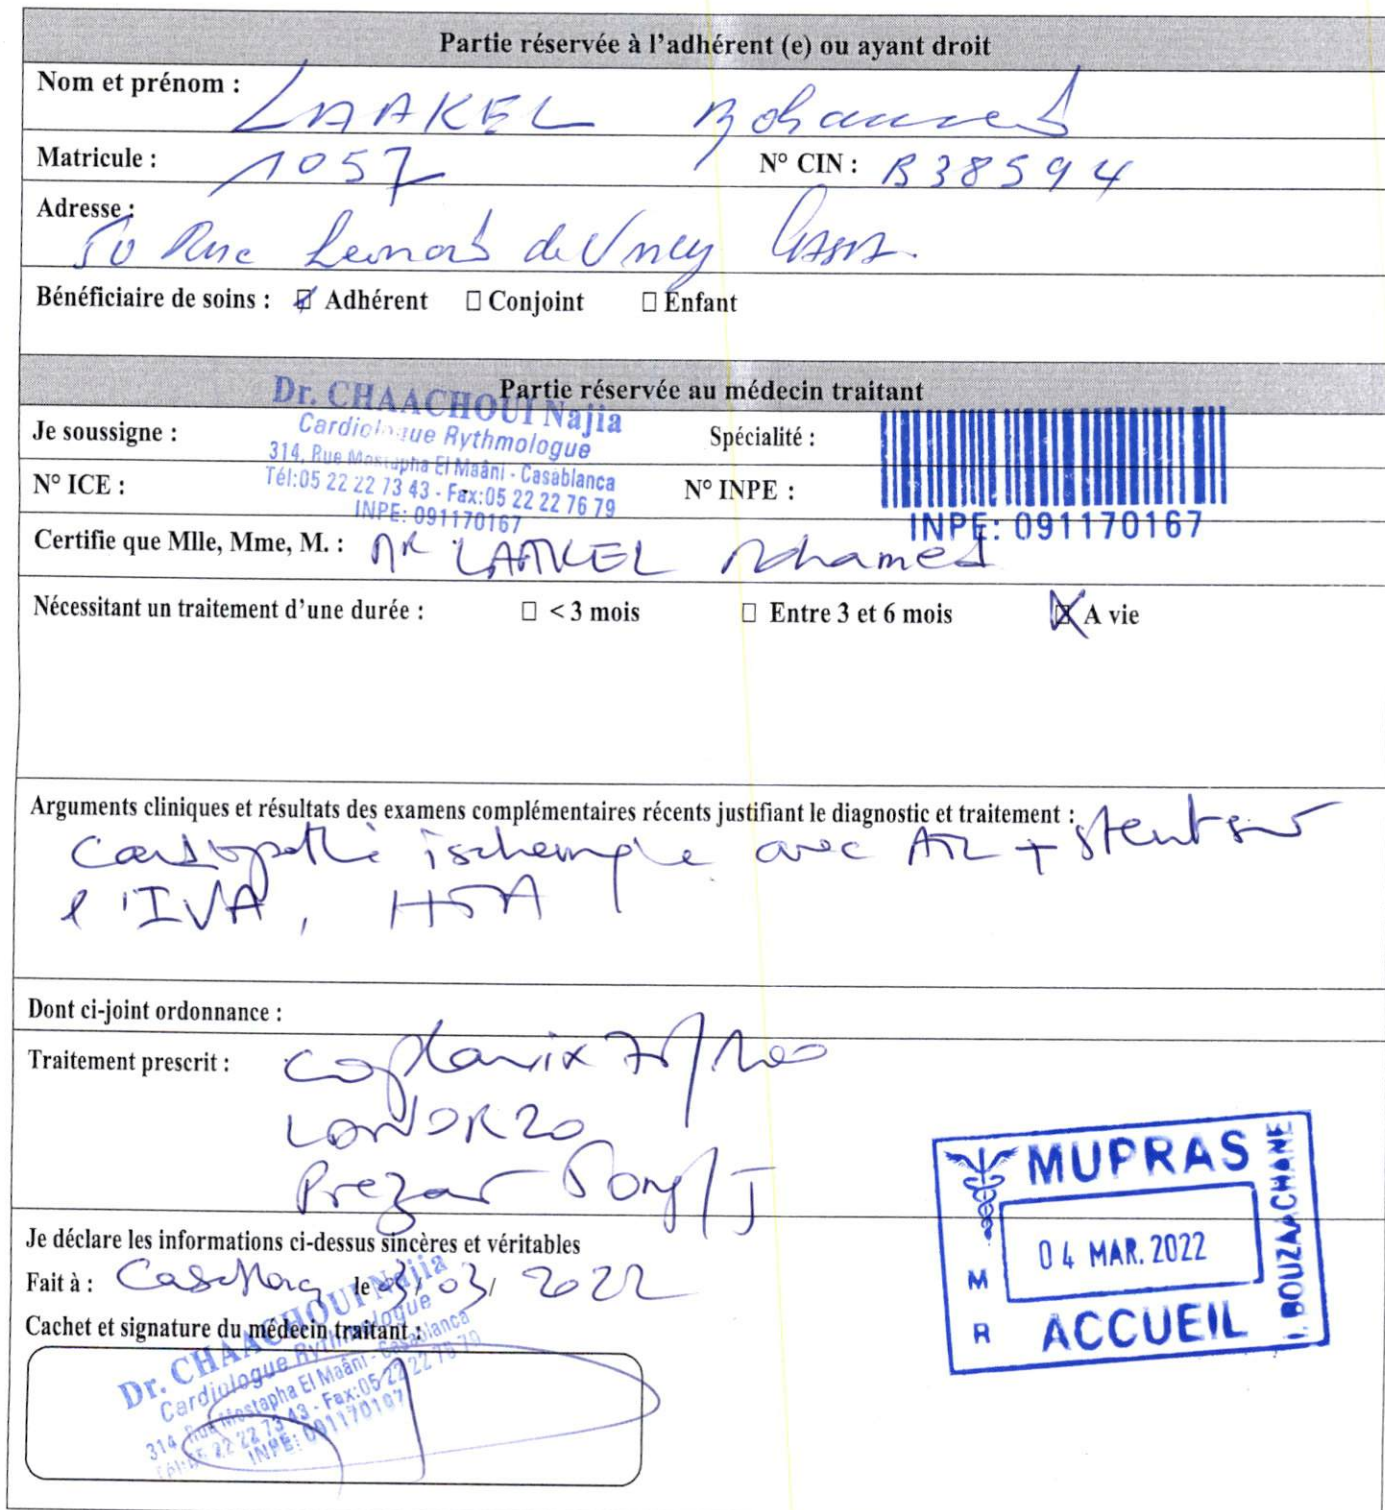 Partie réservée à l'adhérent (e) ou ayant droit
Nom et prénom : LAAKEL Mohammed
Matricule : 1057 N° CIN : B38594
Adresse :
50 Rue Leonard de Vincy Casa
Bénéficiaire de soins : ☑ Adhérent □ Conjoint □ Enfant
Partie réservée au médecin traitant
Dr. CHAACHOUI Najia
Cardiologue Rythmologue
314, Rue Mostapha El Maâni - Casablanca
Tél:05 22 22 73 43 - Fax:05 22 22 76 79
INPE: 091170167
Je soussigne : Spécialité :
N° ICE : N° INPE :
INPE: 091170167
Certifie que Mlle, Mme, M. : MR LAAKEL Mohamed
Nécessitant un traitement d'une durée : □ < 3 mois □ Entre 3 et 6 mois ☒ A vie
Arguments cliniques et résultats des examens complémentaires récents justifiant le diagnostic et traitement :
Cardiopathie ischemique avec ATL + stent sur
l'IVA, HTA
Dont ci-joint ordonnance :
Traitement prescrit : Coplavix 75/100
LOWOR20
Prezar 50mg/J
MUPRAS
04 MAR. 2022
M R
ACCUEIL
I. BOUZAACHANE
Je déclare les informations ci-dessus sincères et véritables
Fait à : le 03/03/2022
Cachet et signature du médecin traitant :
Dr. CHAACHOUI Najia
Cardiologue Rythmologue
314, Rue Mostapha El Maâni - Casablanca
Tél:05 22 22 73 43 - Fax:05 22 22 76 79
INPE: 091170167